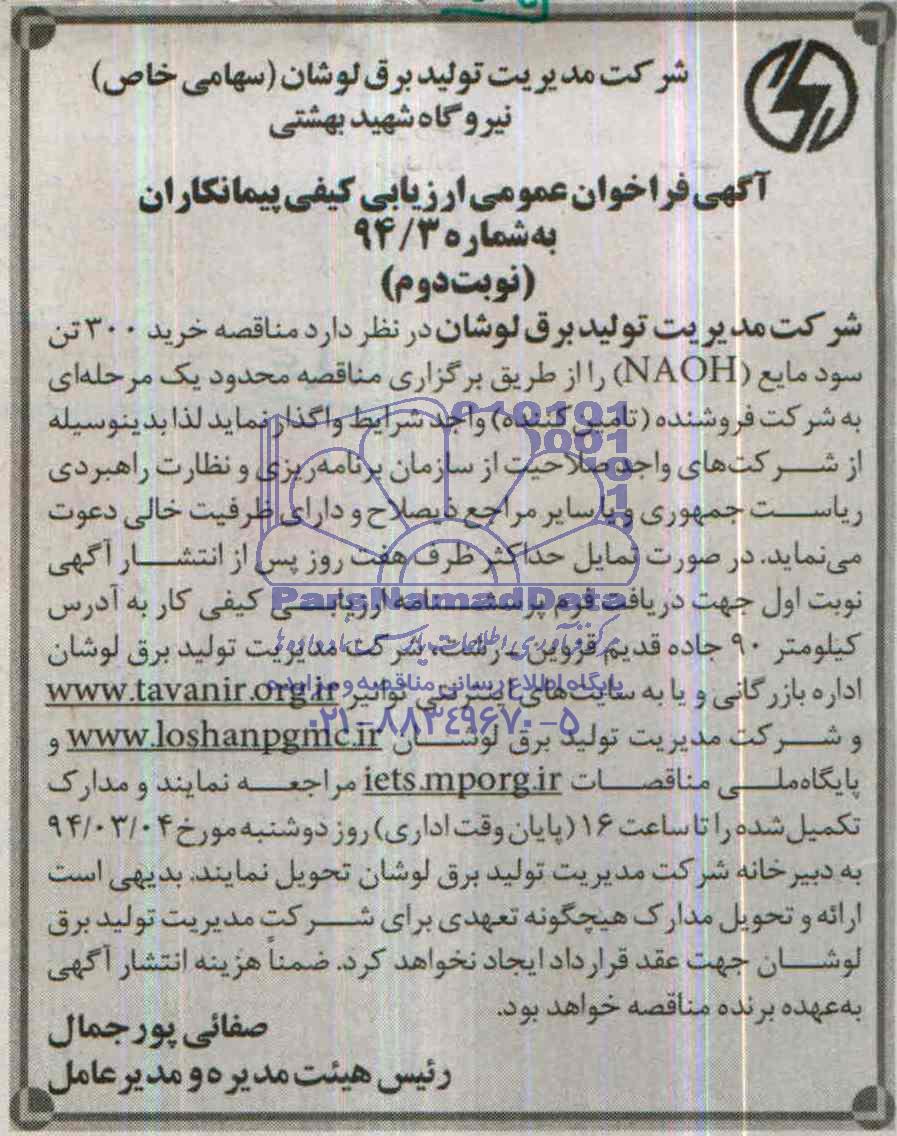 شرکت مدیریت تولید برق لوشان (سهامی خاص)
نیروگاه شهید بهشتی
آگهی فراخوان عمومی ارزیابی کیفی پیمانکاران
به شماره ۹۴/۳
(نوبت دوم)
شرکت مدیریت تولید برق لوشان در نظر دارد مناقصه خرید ۳۰۰ تن
سود مایع (NAOH) را از طریق برگزاری مناقصه محدود یک مرحله‌ای
به شرکت فروشنده (تامین کننده) واجد شرایط واگذار نماید لذا بدینوسیله
از شرکت‌های واجد صلاحیت از سازمان برنامه‌ریزی و نظارت راهبردی
ریاست جمهوری و یا سایر مراجع ذیصلاح و دارای ظرفیت خالی دعوت
می‌نماید. در صورت تمایل حداکثر ظرف هفت روز پس از انتشار آگهی
نوبت اول جهت دریافت فرم پرسشنامه ارزیابی کیفی کار به آدرس
کیلومتر ۹۰ جاده قدیم قزوین - رشت، شرکت مدیریت تولید برق لوشان
اداره بازرگانی و یا به سایت‌های اینترنتی توانیر www.tavanir.org.ir
و شرکت مدیریت تولید برق لوشان www.loshanpgmc.ir و
پایگاه ملی مناقصات iets.mporg.ir مراجعه نمایند و مدارک
تکمیل شده را تا ساعت ۱۶ (پایان وقت اداری) روز دوشنبه مورخ ۹۴/۰۳/۰۴
به دبیرخانه شرکت مدیریت تولید برق لوشان تحویل نمایند. بدیهی است
ارائه و تحویل مدارک هیچگونه تعهدی برای شرکت مدیریت تولید برق
لوشان جهت عقد قرارداد ایجاد نخواهد کرد. ضمناً هزینه انتشار آگهی
به‌عهده برنده مناقصه خواهد بود.
صفائی پور جمال
رئیس هیئت مدیره و مدیر عامل
ParsNamadData
مرکز فرآوری اطلاعات پارس نماد داده‌ها
پایگاه اطلاع رسانی مناقصه و مزایده
۰۲۱-۸۸۳۴۹۶۷۰-۵